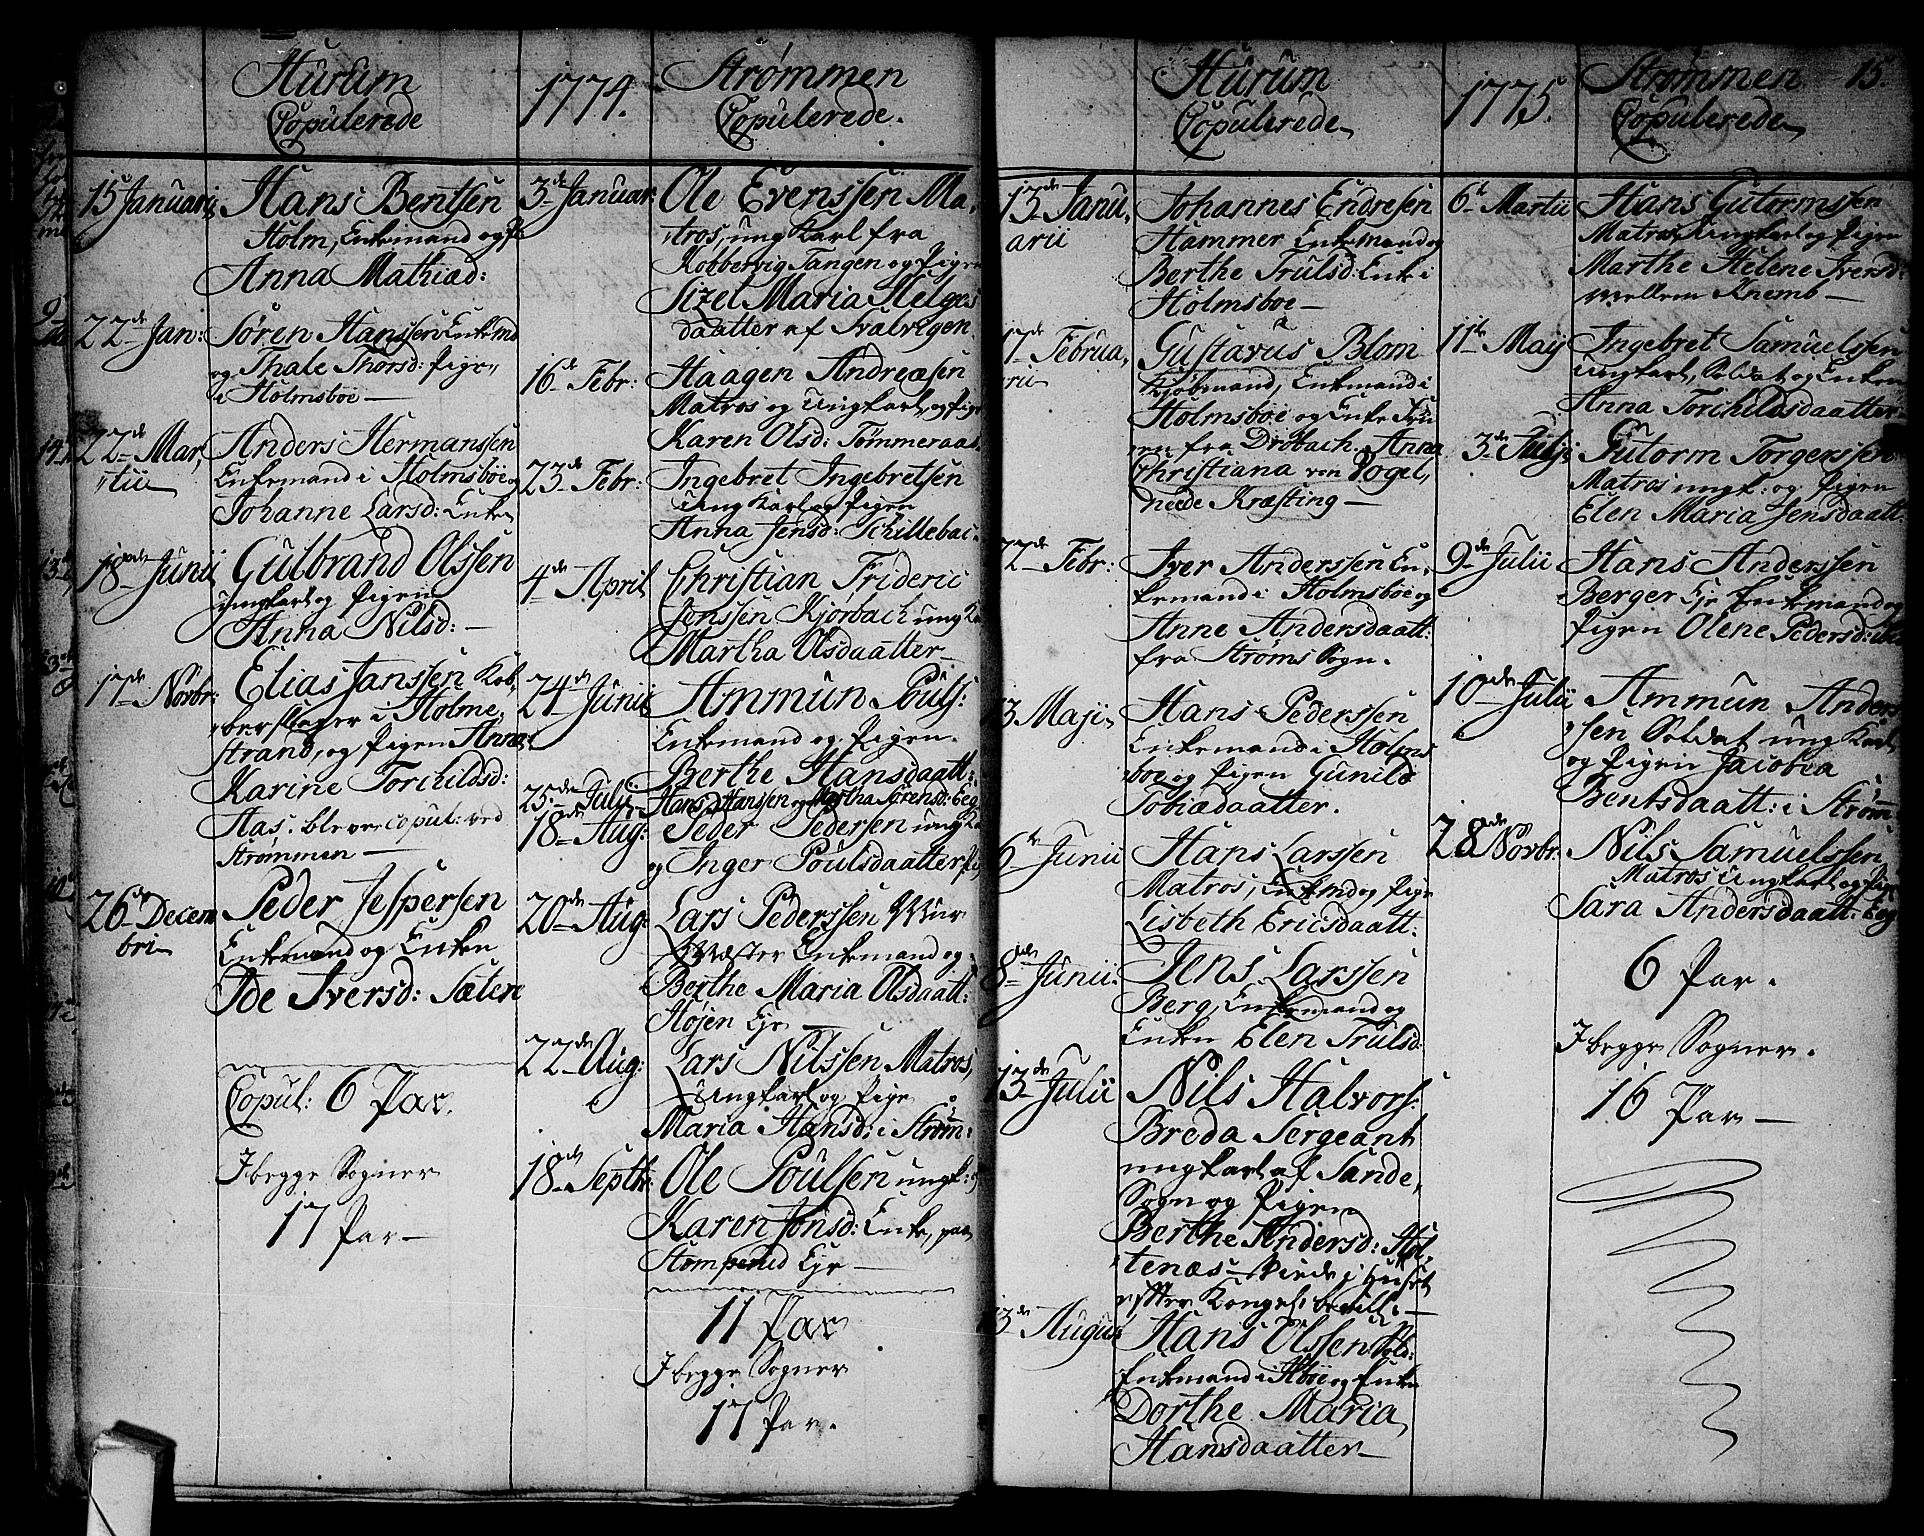 Hurum
Copulerede
1774.
Strømmen
Copulerede.
15 Januarii
Hans Bentsen
Holm, Enkemand og P:
Anna Mathiæd:
22de Jan:
Søren Hanssen Enkemd
og Thale Thorsd: Pige
i Holmsboe
22de Mar,
tii
Anders Hermanssen
Enkemand i Holmsboe og
Johanne Larsd: Enke
18de Junii
Gulbrand Olssen
ungkarl og Pigen
Anna Nilsd:
17de Novbr:
Elias Janssen Kob,
berslager i Holme,
strand, og Pigen Anne
Karine Torchildsd:
Aas. bleve copul: ved
Strømmen
26de Decem
bri
Peder Jespersen
Enkemand og Enken
Ide Iversd: Sæter
Copul: 6 Par.
I begge Sogner
17 Par
3de Januar
Ole Evenssen Ma,
tros, ung Karl fra
Kobbervig Tangen og Pigen
Sizel Maria Helges
daatter af Svalvigen
16de Febr:
Haagen Andreæsen
Matros og Ungkarl, og Pige
Karen Olsd: Tømmeraas
23de Febr:
Ingebret Ingebretsen
Ung Karl og Pigen
Anna Jensd: Schillebac
4de April
Christian Frideric
Jonssen Kjørbach ung Ka
Martha Olsdaatter
24de Junii
Ammun Pouls:
Enkemand og Pigen
Berthe Hansdaatt:
25de Julii
Hans Hanssen og Martha Sørensd: Beg
18de Aug:
Peder Pedersen ung Ka
og Inger Poulsdaatter Pi
20de Aug:
Lars Pederssen Muur
Mæster Enkemand og
Berthe Maria Olsdaatt:
Højen Eje
22de Aug:
Lars Nilssen Matros,
Ungkarl og Pige
Maria Hansd: i Strøm:
18de Septbr:
Ole Poulssen ungk:
Karen Jonsd: Enke, paa
Strømperud Eje
11 Par
I begge Sogner
17 Par.
Hurum
Copulerede
1775.
Strømmen
Copulerede
15.
13de Janu,
arii
Johannes Endresen
Hammer Enkemand og
Berthe Trulsd: Enke i
Holmsboe
17de Februa,
rii
Gustavus Blom
Kjøbmand, Enkemand i
Holmsboe og Enke Fru
en fra Drøbach. Anna
Christiana von Vogel,
neede Kræfting
22de Febr:
Iver Anderssen En,
kemand i Holmsboe og
Anne Andersdaatt:
fra Strøms Sogn.
13 Maji
Hans Pederssen
Enkemand i Holms
boe og Pigen Gunild
Tobiædaatter.
6te Junii
Hans Larssen
Matros, Enkemd og Pige
Lisbeth Ericsdaatt:
8de Junii:
Jens Larssen
Berg, Enkemand og
Enken Elen Trulsd:
13de Julii
Nils Halvors:
Breda Sergeant
ungkarl af Sande,
Sogn og Pigen
Berthe Andersd: Hol,
tenæs viede i Huset
efter Kongel: bevill:
13de Augus
Hans Olssen Sold:
Enkemand i Hboe og Enke
Dorthe Maria
Hansdaatter
6te Martii
Hans Gutormssen
Matros, Ungkarl og Pigen
Marthe Helene Iversd:
Mellem Knemb
11te Maij
Ingebret Samuelssen
Ungkarl, Soldat og Enken
Anna Torchildsdaatter
3de Julij
Gutorm Torgerssen
Matros ungk: og Pigen
Elen Maria Jensdaatt:
9de Julii
Hans Anderssen
Berger Eje Enkemand og
Pigen Olene Pedersd: ibid
10de Julii
Ammun Anders
sen Soldat ung Karl
og Pigen Jacobia
Bentsdaatt: i Strøm:
28de Novbr:
Nils Samuelssen
Matros Ungkarl og Pige
Sara Andersdaatt: Beg
6 Par.
I begge Sogner.
16 Par